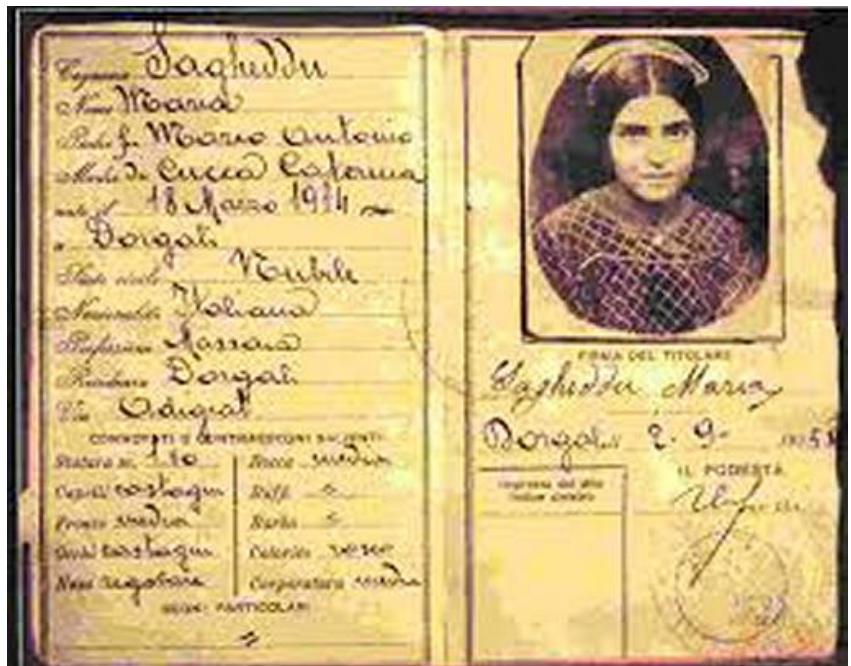 Cognome Sagheddu
Nome Maria
Padre fu Marco Antonio
Madre da Cucca Caterina
nato il 18 Marzo 1914
a Dorgali
Stato civile Nubile
Nazionalità Italiana
Professione Massaia
Residenza Dorgali
Via Adigrat
CONNOTATI E CONTRASSEGNI SALIENTI
Statura m.
Capelli castagni
Fronte media
Occhi castagni
Naso regolare
Bocca media
Baffi
Barba
Colorito roseo
Corporatura media
SEGNI PARTICOLARI
FIRMA DEL TITOLARE
Sagheddu Maria
Dorgali 2-9-
Impronta del dito
indice sinistro
IL PODESTÀ